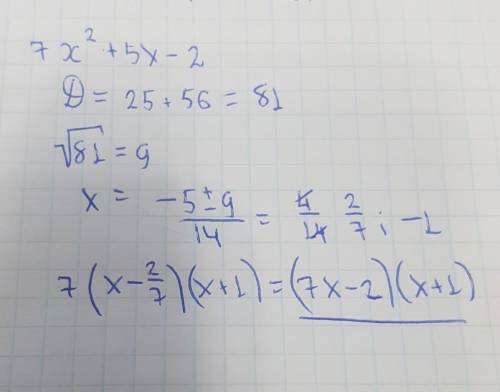 7x² + 5x - 2
D = 25 + 56 = 81
√81 = 9
x = (-5 ± 9)/14 = 4/14 2/7; -1
7(x - 2/7)(x+1) = (7x - 2)(x+1)